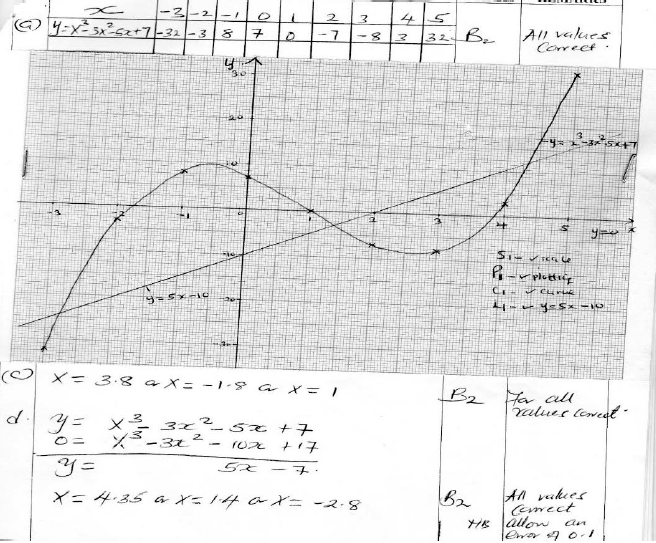 x -3 -2 -1 0 1 2 3 4 5
(a) y=x³-3x²-5x+7 -32 -3 8 7 0 -7 -8 3 32 B₂ All values
Correct.
y
30
20
10
y=x³-3x²-5x+7
-3 -2 -1 0 1 2 3 4 5 x
y=0
-10
S1 - ✓ scale
P1 - ✓ plotting
C1 - ✓ curve
L1 - ✓ y=5x-10
y=5x-10
-20
-30
(c) x = 3.8 or x = -1.8 or x = 1 B₂ For all
values correct.
d. y = x³ - 3x² - 5x + 7
0 = x³ - 3x² - 10x + 17
y = 5x - 7.
x = 4.35 or x = 1.4 or x = -2.8 B₂ All values
Correct
allow an
error of 0.1